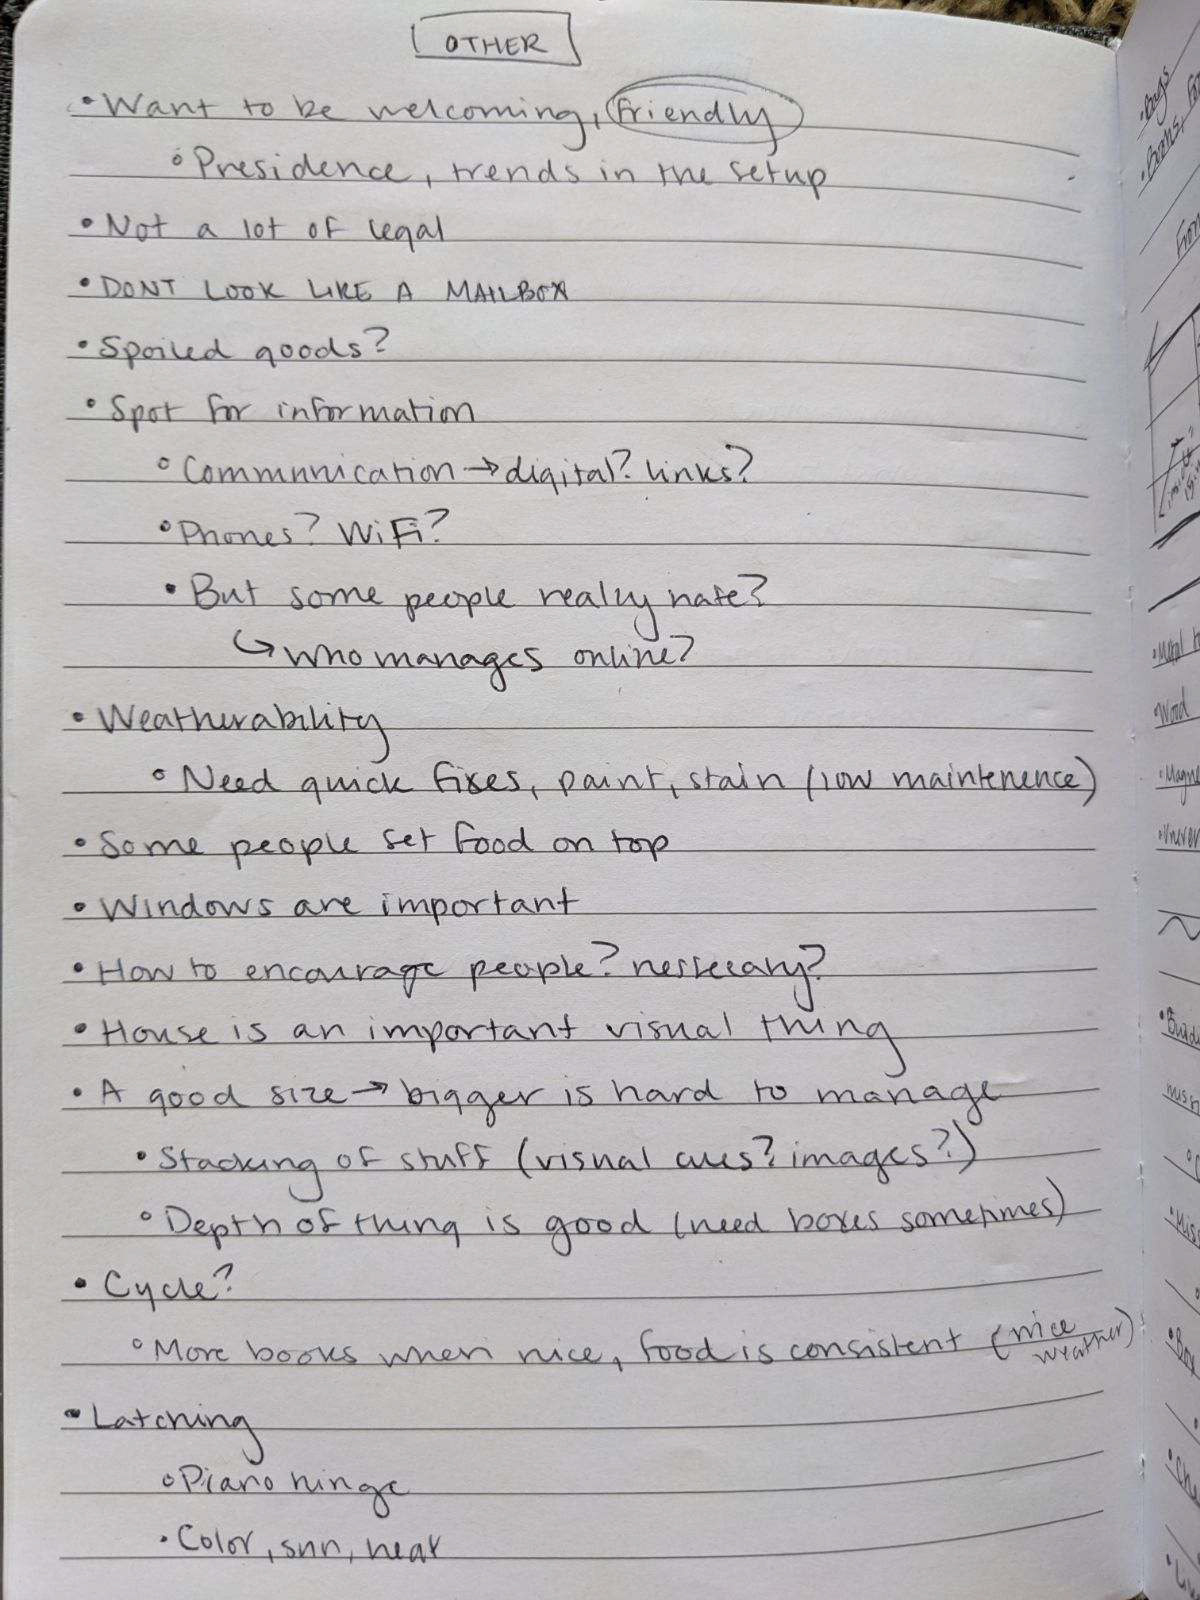 OTHER
• Want to be welcoming, friendly
◦ Presidence, trends in the setup
• Not a lot of legal
• DONT LOOK LIKE A MAILBOX
• Spoiled goods?
• Spot for information
◦ Communication → digital? links?
• Phones? WiFi?
• But some people really hate?
↳ who manages online?
• Weatherability
◦ Need quick fixes, paint, stain (low maintenence)
• Some people set food on top
• Windows are important
• How to encourage people?
• House is an important visual thing
• A good size → bigger is hard to manage
• Stacking of stuff (visual cues? images?)
◦ Depth of thing is good (need boxes sometimes)
• Cycle?
◦ More books when nice, food is consistent (nice weather)
• Latching
◦ Piano hinge
• Color, sun, heat
• Bugs
• Books,
Wood